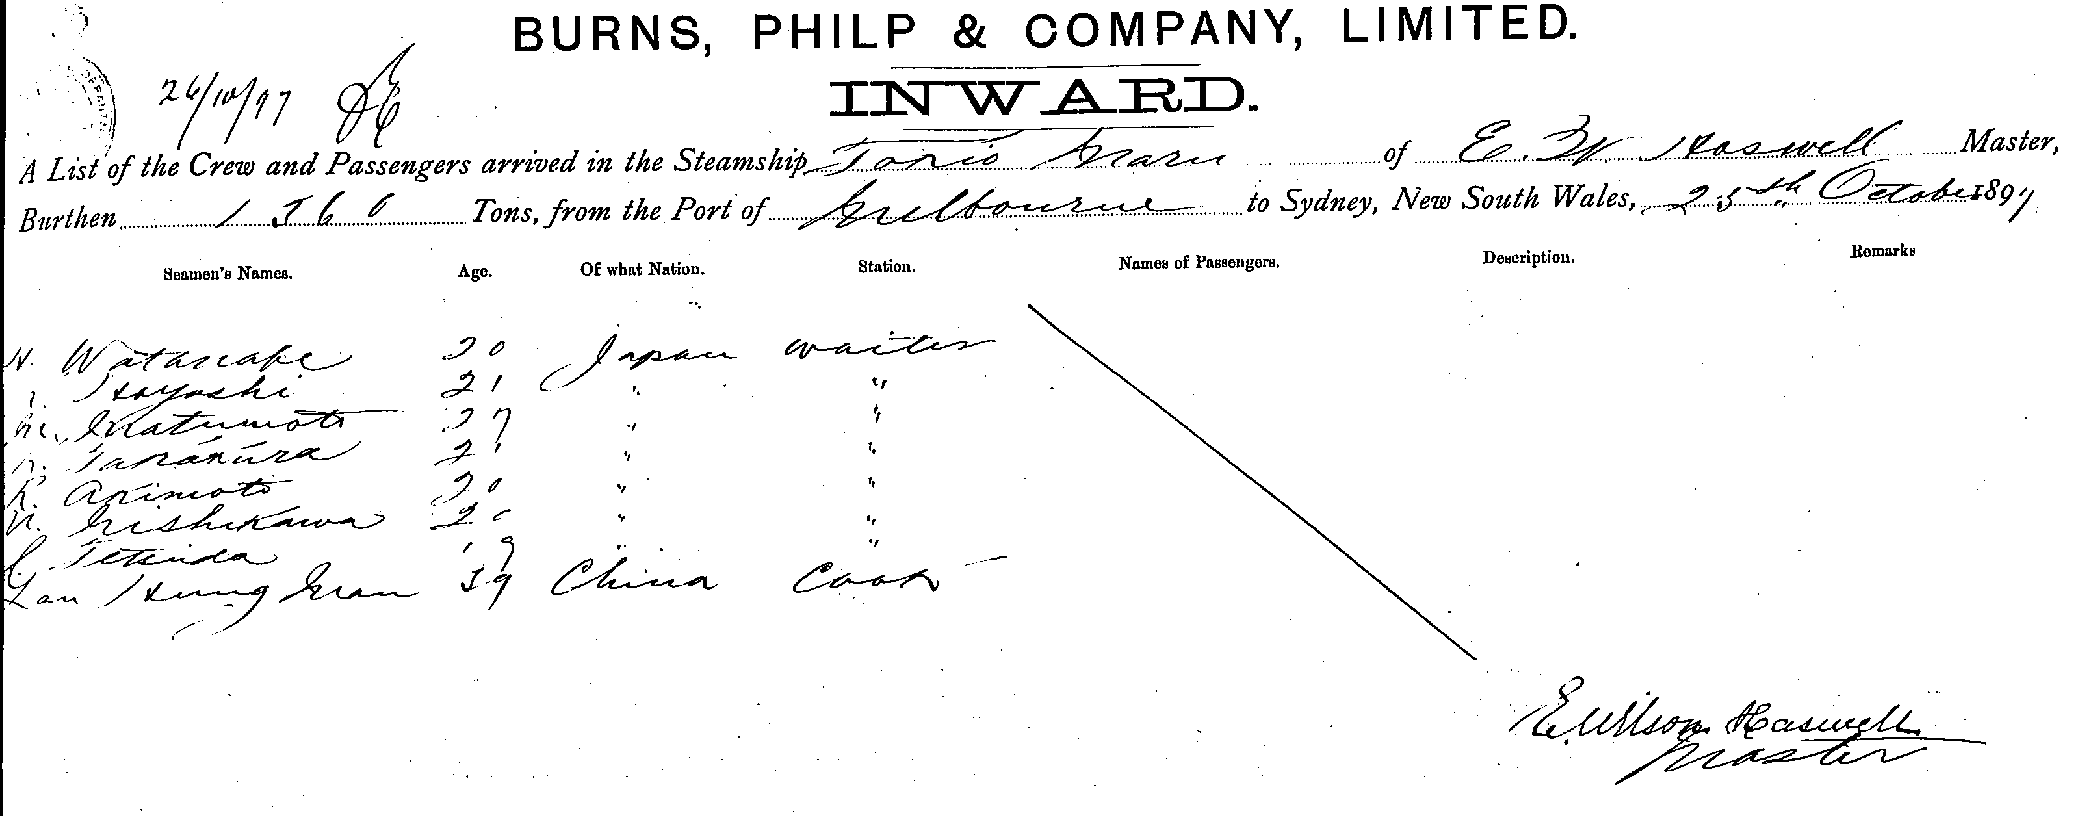 BURNS, PHILP & COMPANY, LIMITED.
INWARD.
26/10/97
A List of the Crew and Passengers arrived in the Steamship Torio Maru of E. W. Haswell Master,
Burthen 1360 Tons, from the Port of Melbourne to Sydney, New South Wales, 25th October 1897
Seamen's Names. Age. Of what Nation. Station. Names of Passengers. Description. Remarks
H. Watanabe 20 Japan waiter
Hayashi 21 " "
M. Matumoto 27 " "
Takakura 21 " "
K. Akimoto 20 " "
N. Nishikawa 20 " "
19 " "
Lau Hung Man 39 China Cook
E. Wilson Haswell
Master